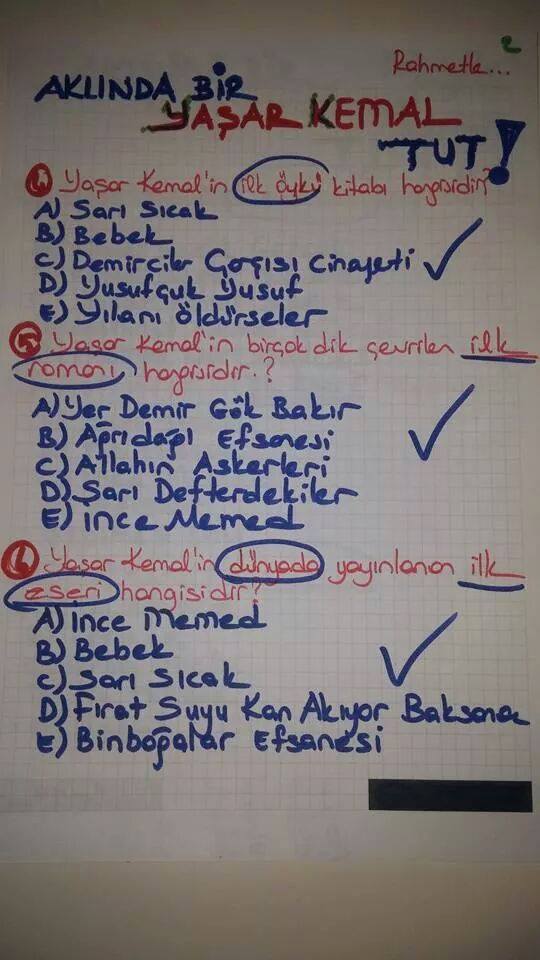 2
Rahmetle...
AKLINDA BİR
YAŞAR KEMAL
TUT!
4) Yaşar Kemal'in ilk öykü kitabı hangisidir?
A) Sarı Sıcak
B) Bebek
C) Demirciler Çarşısı Cinayeti
D) Yusufçuk Yusuf
E) Yılanı öldürseler
5) Yaşar Kemal'in birçok dile çevrilen ilk
romanı hangisidir.?
A) Yer Demir Gök Bakır
B) Ağrıdağı Efsanesi
C) Allahın Askerleri
D) Sarı Defterdekiler
E) ince Memed
6) Yaşar Kemal'in dünyada yayınlanan ilk
eseri hangisidir?
A) ince Memed
B) Bebek
C) Sarı Sıcak
D) Fırat Suyu Kan Akıyor Baksana
E) Binboğalar Efsanesi